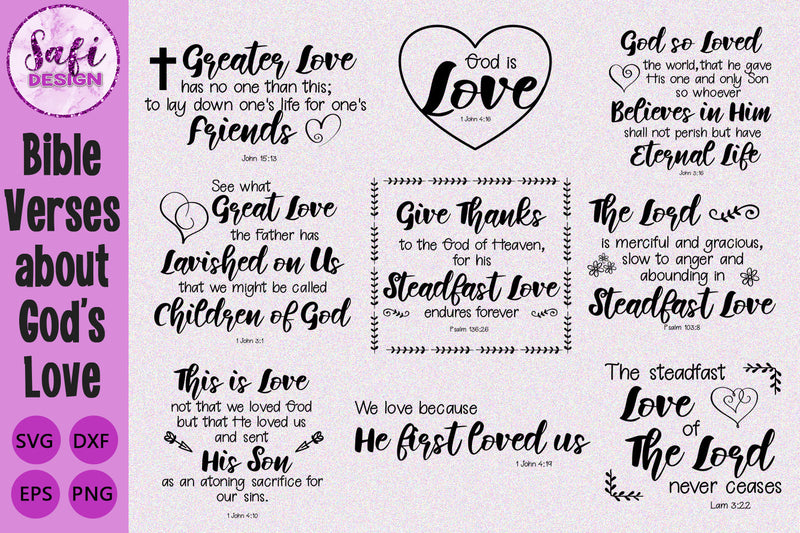 Safi
DESIGN
Bible
Verses
about
God's
Love
SVG
DXF
EPS
PNG
Greater Love
has no one than this;
to lay down one's life for one's
Friends
John 15:13
God is
Love
1 John 4:16
God so Loved
the world, that he gave
His one and only Son
so whoever
Believes in Him
shall not perish but have
Eternal Life
John 3:16
See what
Great Love
the Father has
Lavished on Us
that we might be called
Children of God
1 John 3:1
Give Thanks
to the God of Heaven,
for his
Steadfast Love
endures forever
Psalm 136:26
The Lord
is merciful and gracious,
slow to anger and
abounding in
Steadfast Love
Psalm 103:8
This is Love
not that we loved God
but that He loved us
and sent
His Son
as an atoning sacrifice for
our sins.
1 John 4:10
We love because
He first loved us
1 John 4:19
The steadfast
Love
of
The Lord
never ceases
Lam 3:22